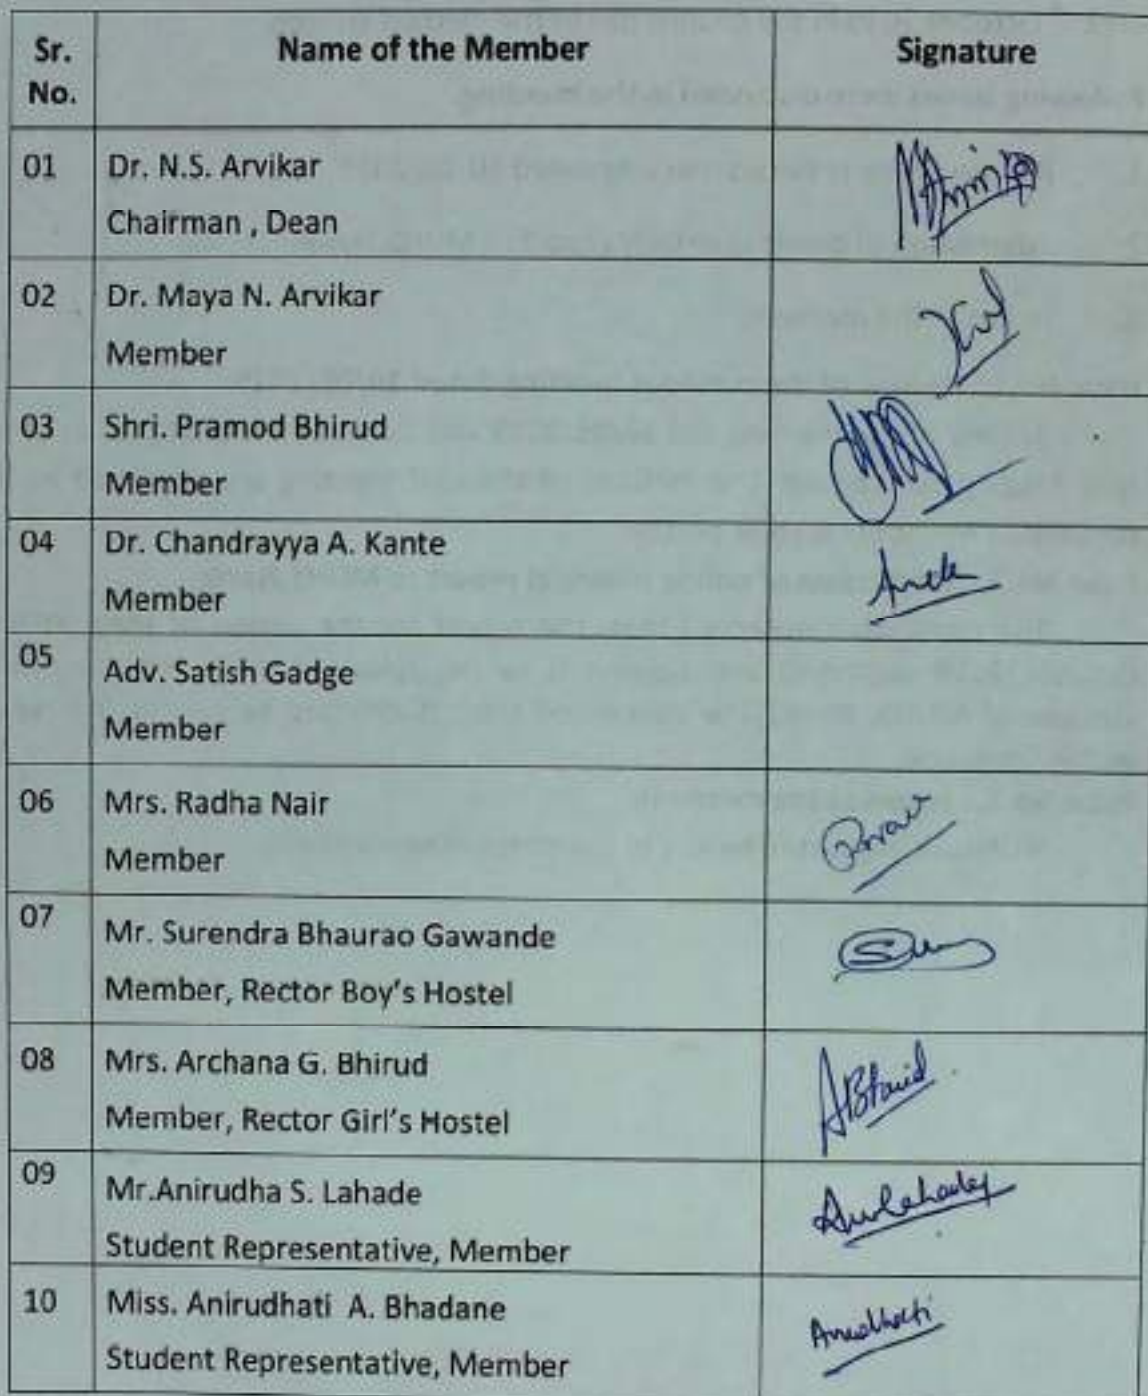 Sr. No. Name of the Member Signature
01 Dr. N.S. Arvikar
Chairman , Dean
02 Dr. Maya N. Arvikar
Member
03 Shri. Pramod Bhirud
Member
04 Dr. Chandrayya A. Kante
Member
05 Adv. Satish Gadge
Member
06 Mrs. Radha Nair
Member
07 Mr. Surendra Bhaurao Gawande
Member, Rector Boy's Hostel
08 Mrs. Archana G. Bhirud ABhirud
Member, Rector Girl's Hostel
09 Mr.Anirudha S. Lahade
Student Representative, Member
10 Miss. Anirudhati A. Bhadane
Student Representative, Member